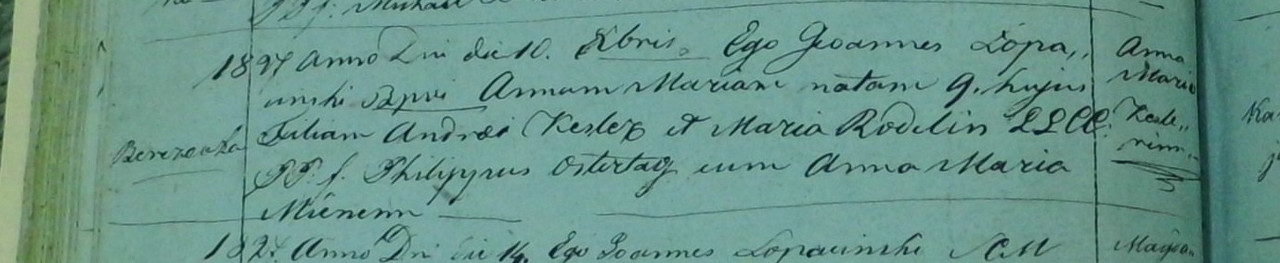 PP. f. Michael
1827 Anno Dni die 10. Xbris. Ego Joannes Lopa,,
cinski Bpvi Annam Mariam natam 9. hujus
Filiam Andreæ Kesler et Maria Rodelin LLCC.
PP. f. Philippus Ostertag cum Anna Maria
Mienenn
Berezowka
Anna
Maria
Kesle,,
rinn
182. Anno Dni die 14. Ego Joannes Lopacinski SCM